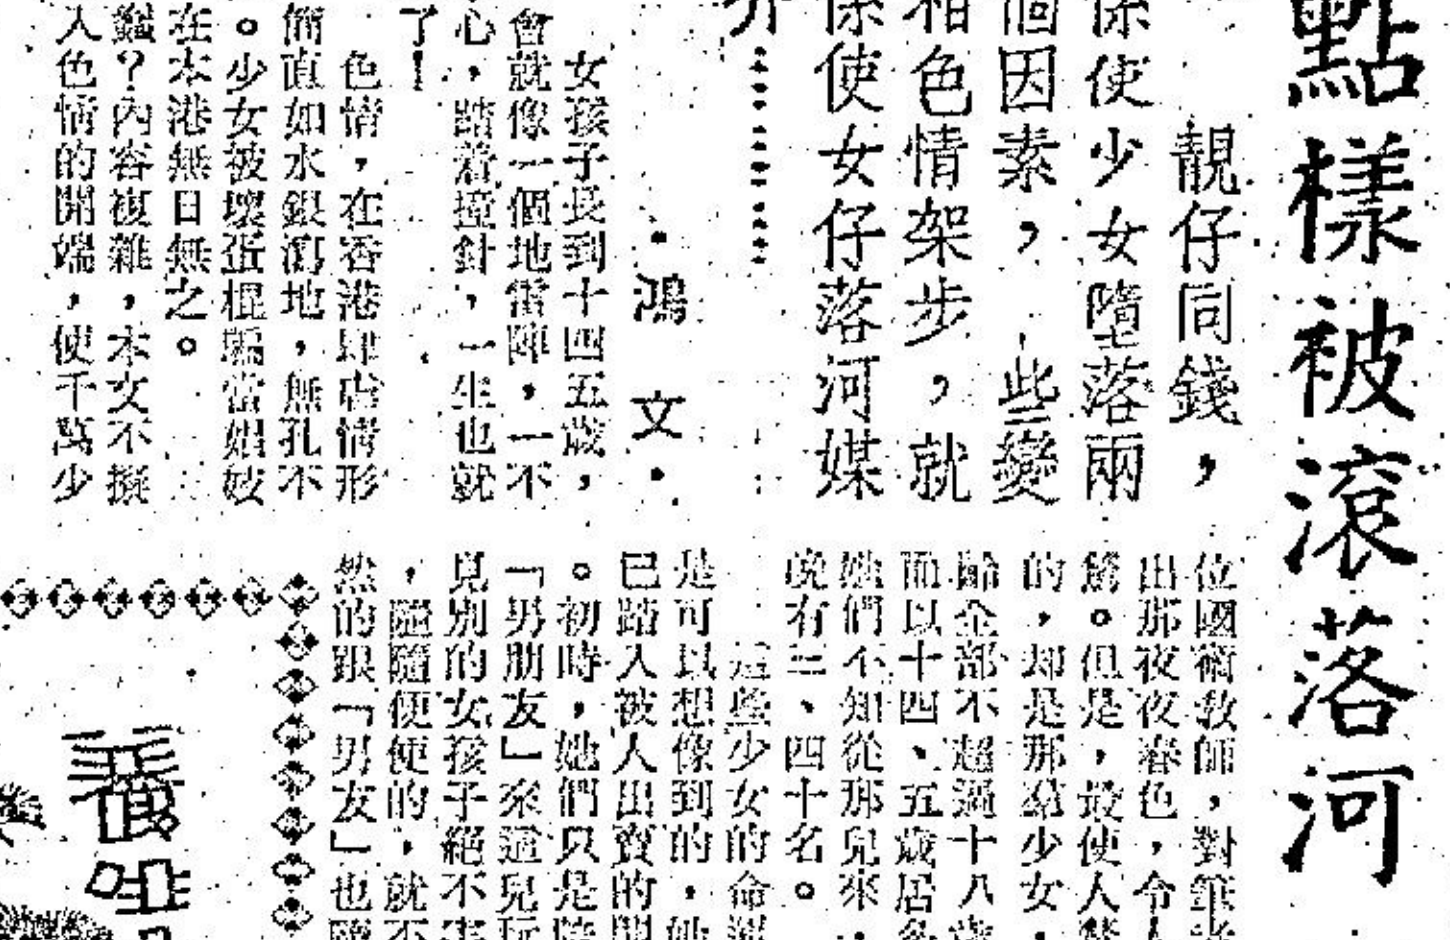 點樣被滾落河
靚仔同錢，
係使少女墮落兩
個因素，些變
相色情架步，就
係使女仔落河媒
介……
·鴻文·
女孩子長到十四五歲，
會就像一個地雷陣，一不
心，踏着撞針，一生也就
了！
色情，在香港肆虐情形
簡直如水銀瀉地，無孔不
。少女被壞蛋棍騙當娼妓
在本港無日無之。
？內容複雜，本文不擬
人色情的開端，使千萬少
位國術教師，對筆者
出那夜夜春色，令人
。但是，最使人
的，却是那羣少女，
齡全部不超過十八歲
而以十四、五歲居多
她們不知從那兒來，
晚有三、四十名。
這些少女的命運
是可以想像到的，她
已踏入被人出賣的開
。初時，她們只是
「男朋友」來這兒玩
見別的女孩子絕不
，隨隨便便的，就不
然的跟「男友」也隨